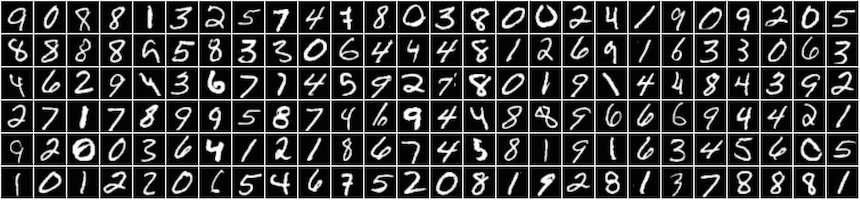 9 0 8 8 1 3 2 5 7 4 7 8 0 3 8 0 0 2 4 1 9 0 9 2 0 5
8 8 8 8 9 5 8 3 3 0 6 4 4 4 8 1 2 6 9 1 6 3 3 0 6 3
4 6 2 9 4 3 6 7 7 4 5 9 2 7 8 0 1 9 1 4 4 8 4 3 9 2
2 7 1 7 8 9 9 5 8 7 4 6 9 4 4 8 8 9 6 6 6 9 4 4 2 1
9 2 0 0 3 6 4 1 2 1 8 6 7 4 5 8 1 9 1 6 3 4 5 6 0 5
1 0 1 2 2 0 6 5 4 6 7 5 2 0 8 1 9 2 8 1 3 7 8 8 8 1